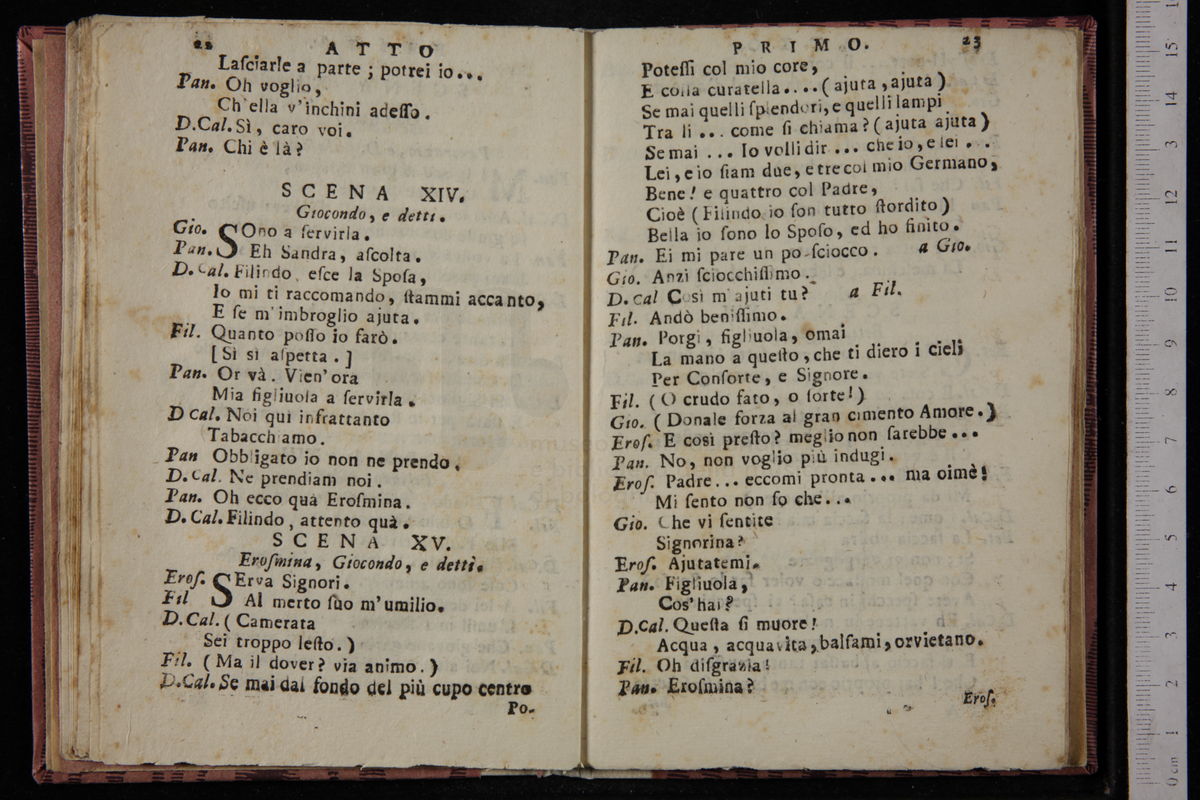 22 ATTO
Laſciarle a parte ; potrei io...
Pan. Oh voglio,
Ch'ella v'inchini adeſſo.
D.Cal. Sì, caro voi.
Pan. Chi è là?
SCENA XIV.
Giocondo, e detti.
Gio. SOno a ſervirla.
Pan. Eh Sandra, aſcolta.
D. Cal. Filindo, eſce la Spoſa,
Io mi ti raccomando, ſtammi accanto,
E ſe m'imbroglio ajuta.
Fil. Quanto poſſo io farò.
[Sì sì aſpetta.]
Pan. Or và. Vien'ora
Mia figliuola a ſervirla.
D Cal. Noi quì infrattanto
Tabacchiamo.
Pan Obbligato io non ne prendo.
D. Cal. Ne prendiam noi.
Pan. Oh ecco quà Eroſmina.
D. Cal. Filindo, attento quà.
SCENA XV.
Eroſmina, Giocondo, e detti.
Eroſ. SErva Signori.
Fil Al merto ſuo m'umilio.
D. Cal. (Camerata
Sei troppo leſto.)
Fil. (Ma il dover? via animo.)
D.Cal. Se mai dal fondo del più cupo centro
Po-
PRIMO. 23
Poteſſi col mio core,
E colla curatella....(ajuta, ajuta)
Se mai quelli ſplendori, e quelli lampi
Tra li... come ſi chiama? (ajuta ajuta)
Se mai ... Io volli dir ... che io, e lei ..
Lei, e io ſiam due, e tre col mio Germano,
Bene! e quattro col Padre,
Cioè (Filindo io ſon tutto ſtordito)
Bella io ſono lo Spoſo, ed ho finito.
Pan. Ei mi pare un po ſciocco. a Gio.
Gio. Anzi ſciocchiſſimo.
D. Cal Così m'ajuti tu? a Fil.
Fil. Andò beniſſimo.
Pan. Porgi, figliuola, omai
La mano a queſto, che ti diero i cieli
Per Conſorte, e Signore.
Fil. (O crudo fato, o ſorte!)
Gio. (Donale forza al gran cimento Amore.)
Eroſ. E così preſto? meglio non ſarebbe...
Pan. No, non voglio più indugi.
Eroſ. Padre... eccomi pronta... ma oimè!
Mi ſento non ſo che...
Gio. Che vi ſentite
Signorina?
Eroſ. Ajutatemi.
Pan. Figliuola,
Cos'hai?
D.Cal. Queſta ſi muore!
Acqua, acquavita, balſami, orvietano.
Fil. Oh diſgrazia!
Pan. Eroſmina?
Eroſ.